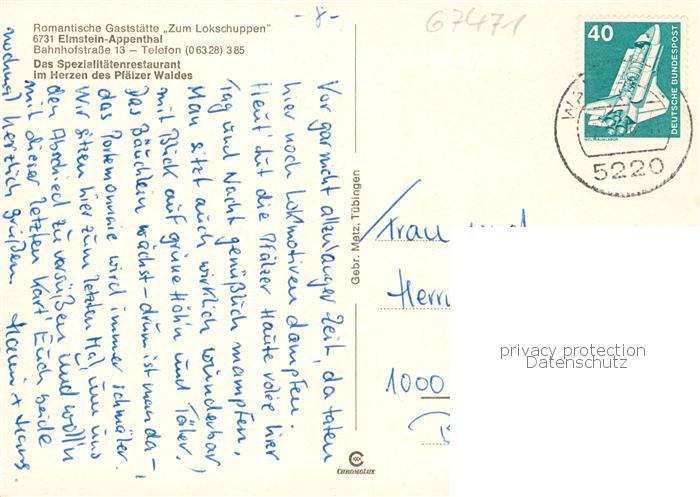 Romantische Gaststätte „Zum Lokschuppen"
6731 Elmstein-Appenthal
Bahnhofstraße 13 — Telefon (0 63 28) 3 85
Das Spezialitätenrestaurant
im Herzen des Pfälzer Waldes
67471
40
DEUTSCHE BUNDESPOST
5220
Vor gar nicht allzulanger Zeit, da taten
hier noch Lokmotiven dampfen.
Heut' tut die Pfälzer Haute volee hier
Tag und Nacht genüßlich mampfen,
Man sitzt auch wirklich wunderbar,
mit Blick auf grüne Höh'n und Täler.
Das Bäuchlein wächst – drum ist man da –,
das Portemonnaie wird immer schmäler.
Wir sitzen hier zum letzten Mal, um uns
den Abschied zu versüßen und woll'n
mit dieser letzten Kart' Euch beide
nochmal herzlich grüßen.
Gebr. Metz, Tübingen
Frau und
Herrn
1000
CHROMOLUX
privacy protection
Datenschutz